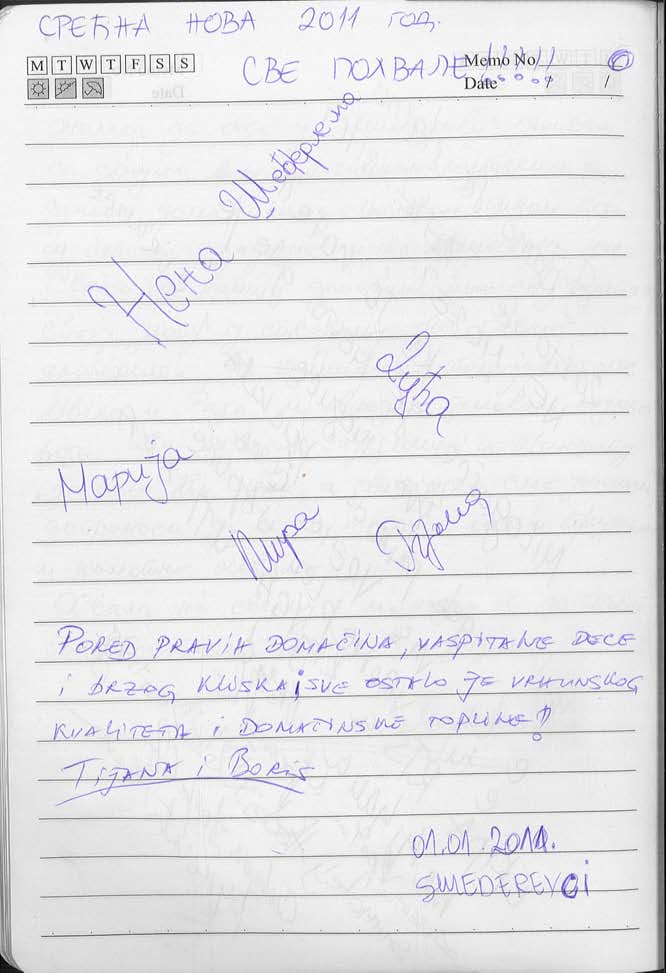 СРЕЋНА НОВА 2011 ГОД.
M T W T F S S
СВЕ ПОХВАЛЕ!!!!!
Memo No.
Date / /
Нена
Марија
Мира
PORED PRAVIH DOMAĆINA, VASPITANE DECE
I BRZOG KLISKA, SVE OSTALO JE VRHUNSKOG
KVALITETA I DOMAĆINSKE TOPLINE!
TIJANA I BORIS
01.01.2011.
SMEDEREVCI